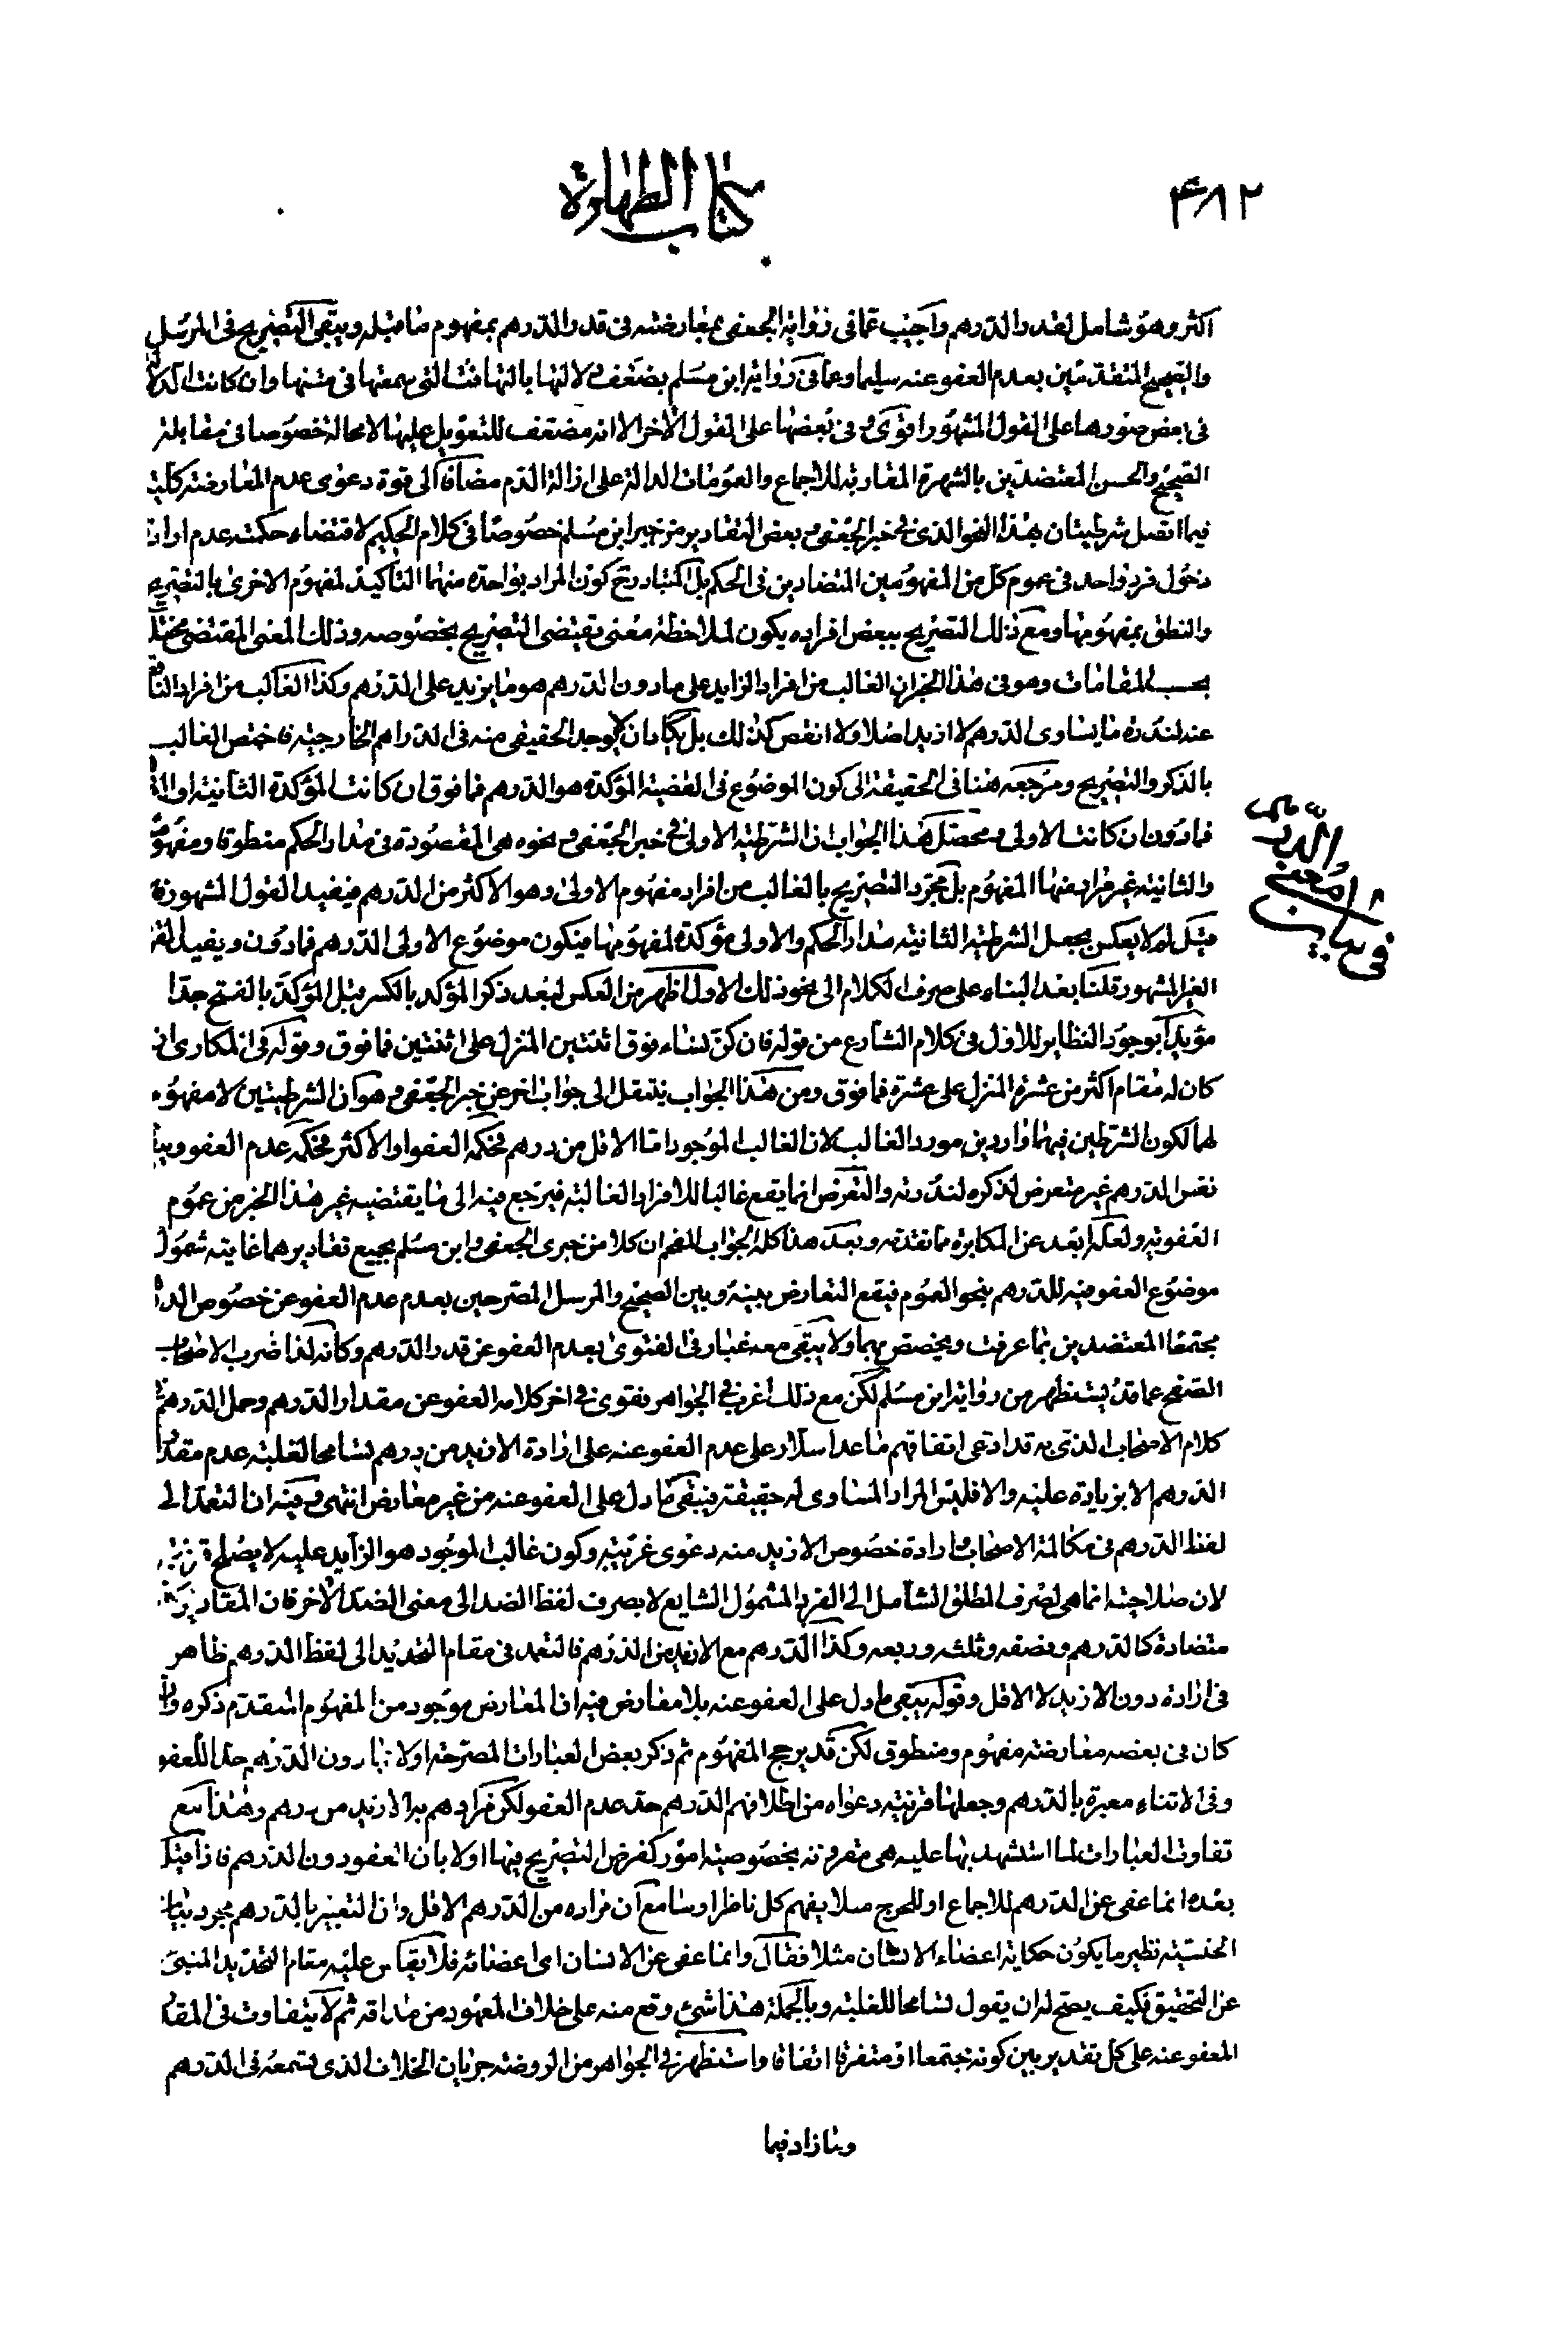 ٤٨٢
كتاب الطهارة
اكثر وهو شامل لقدر الدرهم واجيب عما فى رواية الجعفى بمعارضته فى قدر الدرهم بمفهوم ما قبله ويبقى التصريح فى المرسل
والصحيح المتقدمين بعدم العفو عنه سليما وعما فى رواية ابن مسلم بضعف دلالتها بالتهافت التى سمعتها فى متنها وان كانت الدلالة
فى بعض صورها على القول المشهور اقوى وفى بعضها على القول الاخر الا انه مضعف للتعويل عليها لا محالة خصوصا فى مقابلة
الصحيح والحسن المعتضدين بالشهرة المقاربة للاجماع والعمومات الدالة على ازالة الدم مضافا الى قوة دعوى عدم المعارضة كلية
فيما اتصل شرطيتان بهذا النحو الذى فى خبر الجعفى وبعض التقادير من خبر ابن مسلم خصوصا فى كلام الحكيم لاقتضاء حكمته عدم ارادة
دخول فرد واحد فى عموم كل من المفهومين المتضادين فى الحكم بل المتبادر ح كون المراد بواحدة منهما التاكيد لمفهوم الاخرى بالتصريح
والنطق بمفهومها ومع ذلك التصريح ببعض افراده يكون لملاحظة معنى تقتضى التصريح بخصوصه وذلك المعنى المقتضى مختلف
بحسب المقامات وهو فى هذا الخبر ان الغالب من افراد الزايد على ما دون الدرهم هو ما يزيد على الدرهم وكذا الغالب من افراد الناقص
عنه لندرة ما يساوى الدرهم لا ازيد اصلا ولا انقص كذلك بل يكاد ان لا يوجد الحقيقى منه فى الدراهم الخارجية فاختص الغالب
بالذكر والتصريح ومرجعه هنا فى الحقيقة الى كون الموضوع فى القضية المؤكدة هو الدرهم فما فوق ان كانت المؤكدة الثانية او الدرهم
فما دون ان كانت الاولى ومحصل هذا الجواب ان الشرطية الاولى فى خبر الجعفى ونحوه هى المقصودة فى مدار الحكم منطوقا ومفهوما
والثانية غير مراد منها المفهوم بل مجرد التصريح بالغالب من افراد مفهوم الاولى وهو الاكثر من الدرهم فيفيد القول المشهور فان
قيل لم لا يعكس بجعل الشرطية الثانية مدار الحكم والاولى مؤكدة لمفهومها فيكون موضوع الاولى الدرهم فما دون ويفيد القول
الغير المشهور قلنا بعد البناء على صرف الكلام الى نحو ذلك الاول اظهر من العكس لبعد ذكر المؤكد بالكسر قبل المؤكد بالفتح جدا
مؤيدا بوجود النظاير للاول فى كلام الشارع من قوله فان كن نساء فوق اثنتين المنزل على اثنتين فما فوق وقوله فى المكارى ان
كان له مقام اكثر من عشرة المنزل على عشرة فما فوق ومن هذا الجواب ينتقل الى جواب اخر عن خبر الجعفى وهو ان الشرطيتين لا مفهوم
لهما لكون الشرطين فيهما واردين مورد الغالب لان الغالب الموجود اما الاقل من درهم فحكمه العفو او الاكثر فحكمه عدم العفو ويبقى
نفس الدرهم غير متعرض لذكره لندرته والتعرض انما يقع غالبا للافراد الغالبة فيرجع فيه الى ما يقتضيه غير هذا الخبر من عموم
العفو فيه ولعله ابعد عن المكابرة مما تقدمه وبعد هذا كله الجواب المفحم ان كلا من خبرى الجعفى وابن مسلم بجميع تقاديرهما غايته شمول
موضوع العفو فيه للدرهم بنحو العموم فيقع التعارض بينه وبين الصحيح والمرسل المصرحين بعدم عدم العفو عن خصوص الدرهم
مجتمعا المعتضدين بما عرفت ويخصص بهما ولا يبقى معه غبار فى الفتوى بعدم العفو عن قدر الدرهم وكانه لذا ضرب الاصحاب
الصفح عما قد يستظهر من رواية ابن مسلم لكن مع ذلك اغرب فى الجواهر بقوى فى اخر كلامه العفو عن مقدار الدرهم وحمل الدرهم فى
كلام الاصحاب الذى به قد ادعى اتفاقهم ما عدا سلار على عدم العفو عنه على ارادة الازيد من درهم تسامحا لغلبة عدم مقدار
الدرهم الا بزيادة عليه والا فليس المراد المساوى له حقيقة فيبقى ما دل على العفو عنه من غير معارض انتهى وفيه ان التعمد الى
لفظ الدرهم فى مكالمة الاصحاب وارادة خصوص الازيد منه دعوى غريبة وكون غالب الموجود هو الزايد عليه لا يصلح قرينة
لان صلاحيته انما هى لصرف المطلق الشامل الى الفرد المشمول الشايع لا بصرف لفظ الضد الى معنى الضد الاخر فان المقادير
متضادة كالدرهم ونصفه وثلثه وربعه وكذا الدرهم مع الازيد من الدرهم فالتعمد فى مقام التحديد الى لفظ الدرهم ظاهر
فى ارادة دون الازيد لا الاقل وقوله يبقى ما دل على العفو عنه بلا معارض فيه ان المعارض موجود من المفهوم المتقدم ذكره وان
كان فى بعضه معارضة مفهوم ومنطوق لكن قد يرجح المفهوم ثم ذكر بعض العبارات المصرحة اولا بما دون الدرهم حدا للعفو
وفى الاثناء معبرة بالدرهم وجعلها قرينة دعواه من اطلاقهم الدرهم حد عدم العفو لكن مرادهم به الازيد من درهم وهذا مع
تفاوت العبارات لما استشهد بها عليه هى مقرونة بخصوصية امور كفرض التصريح فيها اولا بان العفو دون الدرهم فاذا قيل
بعده انما عفى عن الدرهم للاجماع او للحرج مثلا يفهم كل ناظر او سامع ان مراده من الدرهم الاقل وان التعبير بالدرهم مجرد بيان
الجنسية نظير ما يكون حكاية اعضاء الانسان مثلا فقال وانما عفى عن الانسان اى اعضائه فلا يقاس عليه مقام التحديد المنبئ
عن التحقيق فكيف يصح له ان يقول تسامحا للغلبة وبالجملة هذا شئ وقع منه على خلاف المعهود من مذاقه ثم لا يتفاوت فى المقدار
المعفو عنه على كل تقدير بين كونه مجتمعا او متفرقا اتفاقا واستظهر فى الجواهر من الروضة جريان الخلاف الذى تسمعه فى الدرهم
وما زاد فيما
فى بيان
معنى
الدرهم